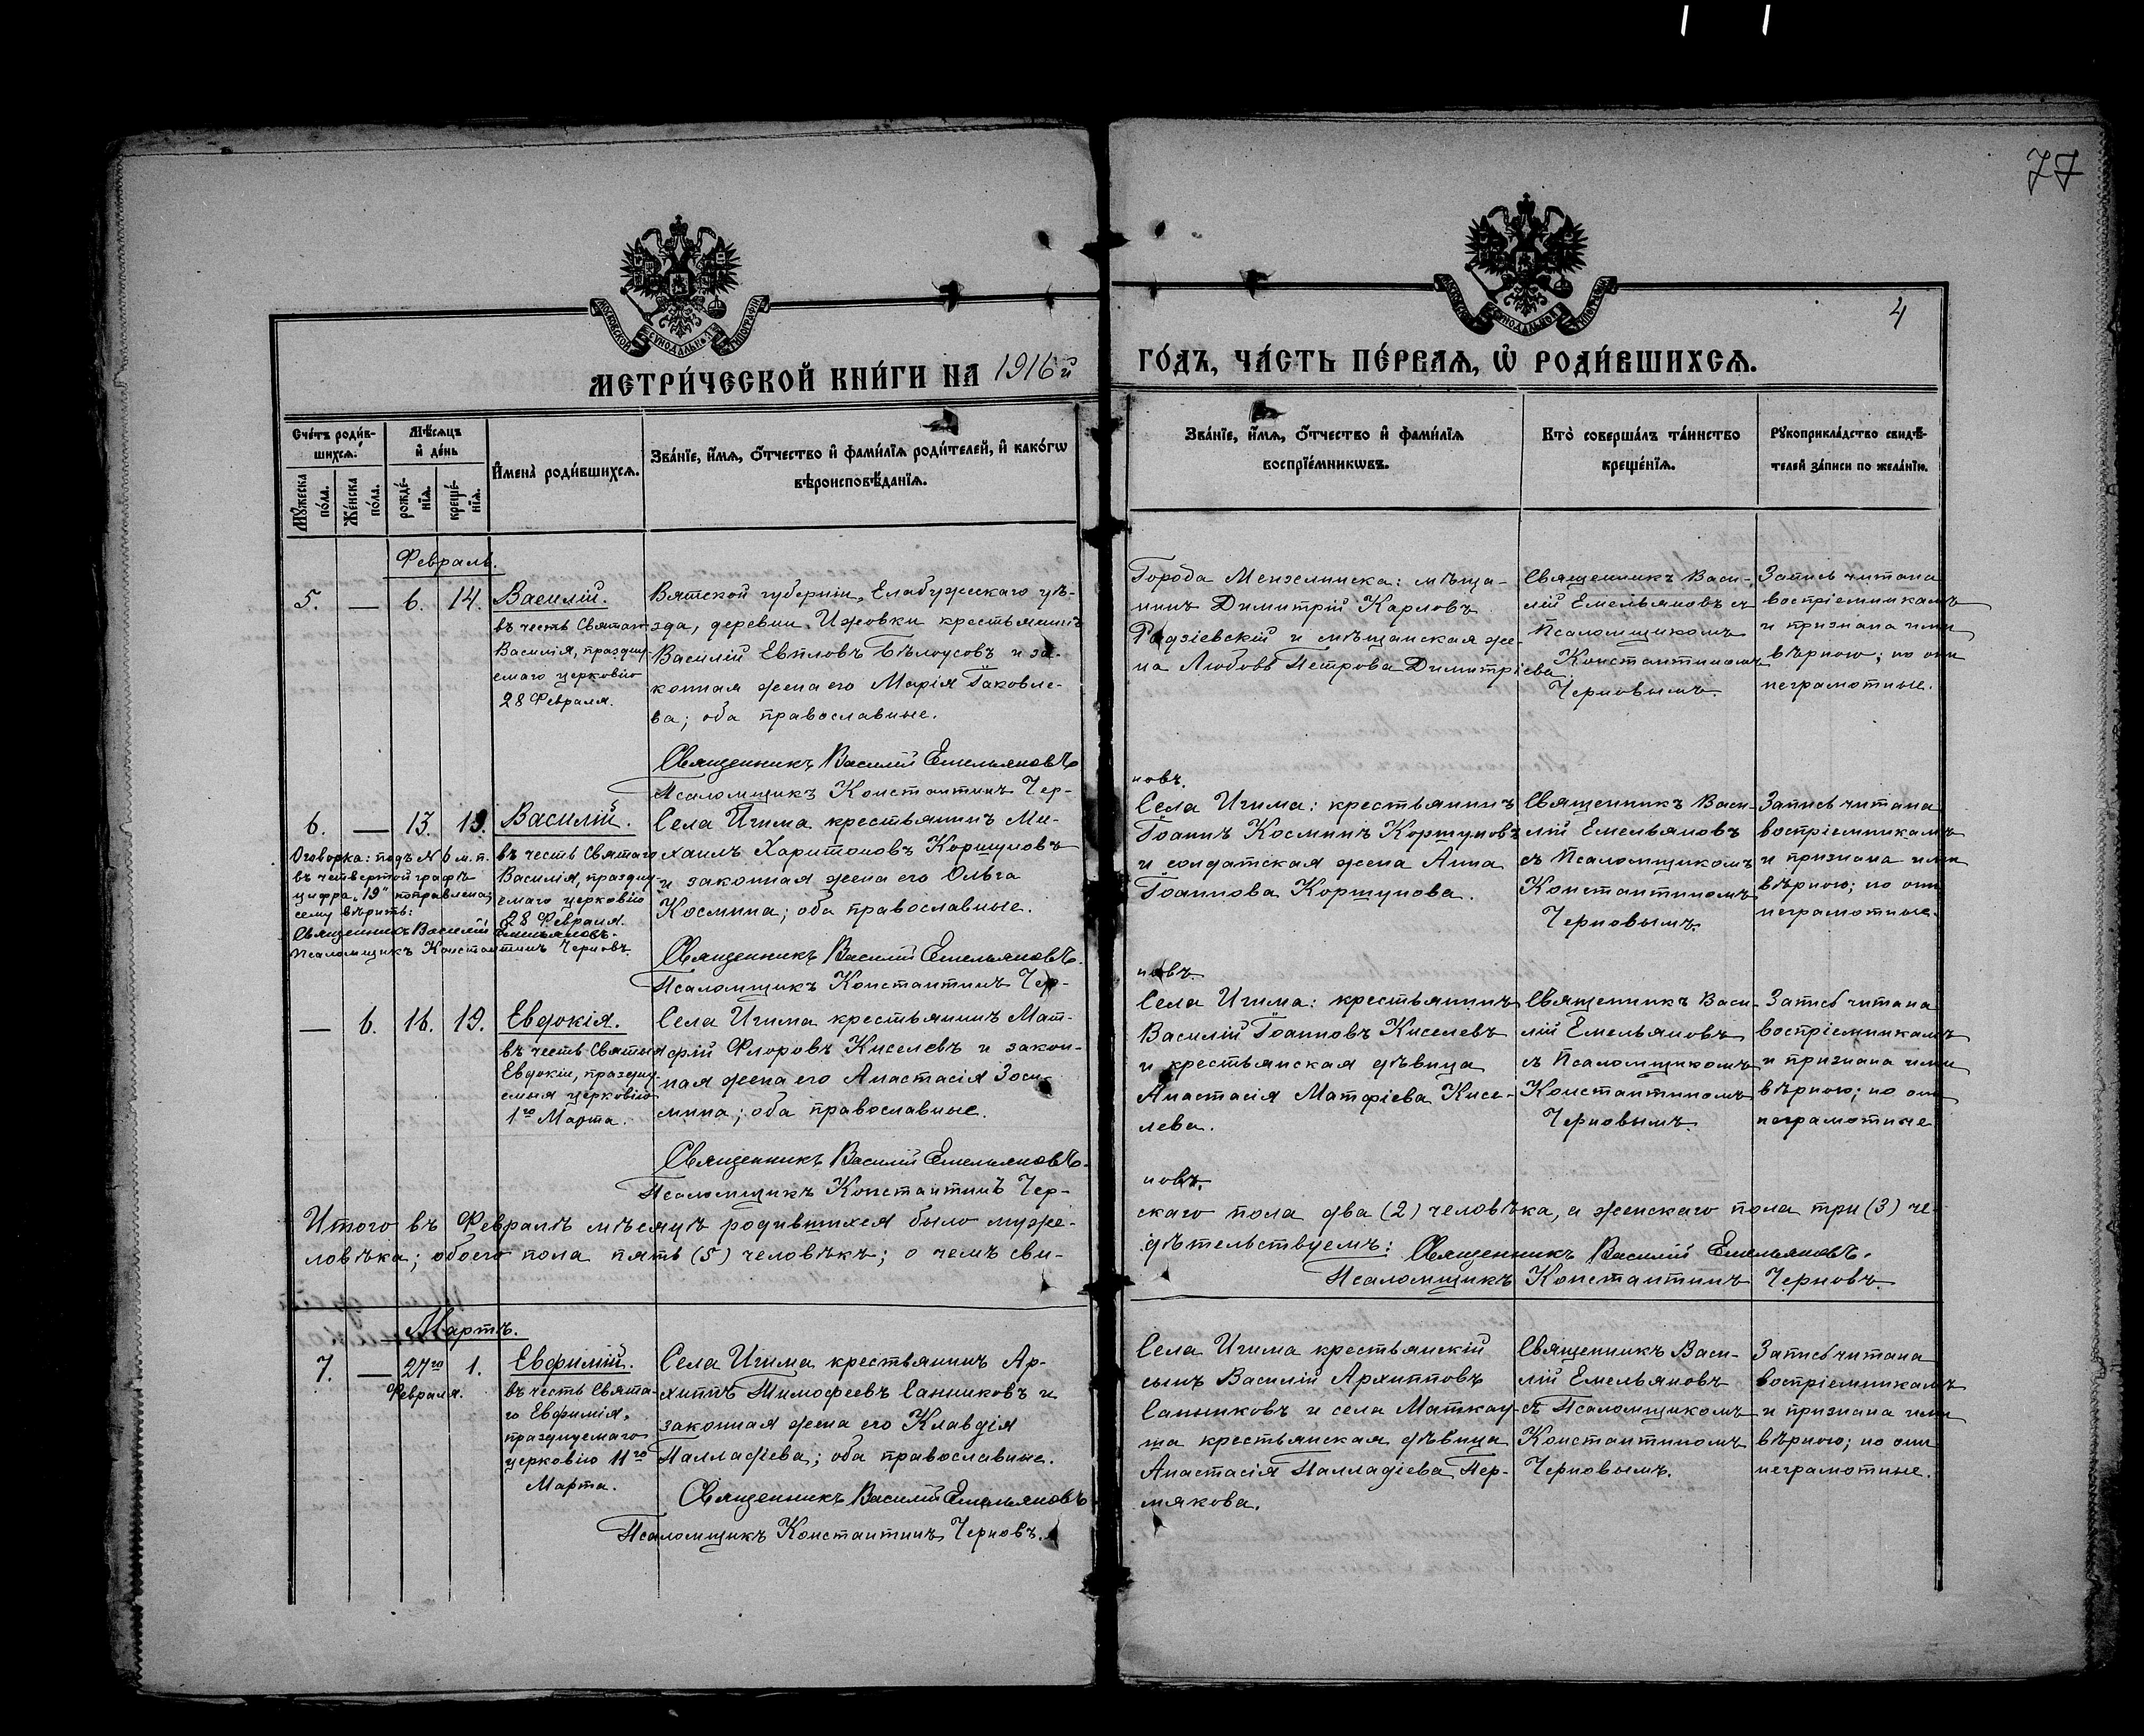 77
МОСКОВСКОЙ СѴНОДАЛЬНОЙ ТИПОГРАФІИ
МОСКОВСКОЙ СѴНОДАЛЬНОЙ ТИПОГРАФІИ
4
МЕТРИ́ЧЕСКОЙ КНИ́ГИ НА 1916й
ГО́ДЪ, ЧА́СТЬ ПЕ́РВАѦ, Ѡ҆ РОДИ́ВШИХСѦ.
Сче́тъ роди́в-
шихсѧ.
Мѣ́сѧцъ
и҆ де́нь
Мꙋ́жеска по́ла.
Же́нска по́ла.
рожде́-нїѧ.
креще́-нїѧ.
И҆мена̀ роди́вшихсѧ.
Зва́нїе, и҆́мѧ, ѻ҆́тчество и҆ фами́лїѧ роди́телей, и҆ како́гѡ
вѣроисповѣ́данїѧ.
Зва́нїе, и҆́мѧ, ѻ҆́тчество и҆ фами́лїѧ
воспрїе́мникѡвъ.
Кто̀ соверша́лъ та́инство
креще́нїѧ.
Рꙋкоприкла́дство свидѣ́-
телей за́писи по жела́нїю.
Февраль.
5. — 6. 14.
Василій.
въ честь Святаго
Василія, праздну-
емаго церковію
28 Февраля.
Вятской губерніи, Елабужскаго уѣ-
зда, деревни Ижовки крестьянинъ
Василій Евпловъ Бѣлоусовъ и за-
конная жена его Марія Іаковле-
ва; оба православные.
Священникъ Василій Емельяновъ
Псаломщикъ Константинъ Чер-
Города Мензелинска: мѣща-
нинъ Димитрій Карловъ
Радзіевскій и мѣщанская же-
на Любовь Петрова Димитріева.
новъ.
Священникъ Васи-
лій Емельяновъ съ
Псаломщикомъ
Константиномъ
Черновымъ.
Запись читана
воспріемникамъ
и признана ими
вѣрною; но они
неграмотные.
6. — 13. 19.
Оговорка: подъ № 6 м. п.
въ четвертой графѣ
цифра „19" поправлена;
сему вѣрить:
Священникъ Василій Емельяновъ.
Псаломщикъ Константинъ Черновъ.
Василій.
въ честь Святаго
Василія, праздну-
емаго церковію
28 Февраля.
Села Игима крестьянинъ Ми-
хаилъ Харитоновъ Коршуновъ
и законная жена его Ольга
Космина; оба православные.
Священникъ Василій Емельяновъ.
Псаломщикъ Константинъ Чер-
Села Игима: крестьянинъ
Іоаннъ Косминъ Коршуновъ
и солдатская жена Анна
Іоаннова Коршунова.
новъ.
Священникъ Васи-
лій Емельяновъ
съ Псаломщикомъ
Константиномъ
Черновымъ.
Запись читана
воспріемникамъ
и признана ими
вѣрною; но они
неграмотные.
— 6. 16. 19.
Евдокія.
въ честь Святыя
Евдокіи, праздну-
емыя церковію
1го Марта.
Села Игима крестьянинъ Мат-
фій Флоровъ Киселевъ и закон-
ная жена его Анастасія Зоси-
мина; оба православные.
Священникъ Василій Емельяновъ.
Псаломщикъ Константинъ Чер-
Села Игима: крестьянинъ
Василій Іоанновъ Киселевъ
и крестьянская дѣвица
Анастасія Матфіева Кисе-
лева.
новъ.
Священникъ Васи-
лій Емельяновъ
съ Псаломщикомъ
Константиномъ
Черновымъ.
Запись читана
воспріемникамъ
и признана ими
вѣрною; но они
неграмотные
Итого въ Февралѣ мѣсяцѣ родившихся было муже-
скаго пола два (2) человѣка, а женскаго пола три (3) че-
ловѣка; обоего пола пять (5) человѣкъ; о чемъ сви-
дѣтельствуемъ: Священникъ Василій Емельяновъ.
Псаломщикъ Константинъ Черновъ.
Мартъ.
7. — 27го 1.
Февраля.
Евфимій.
въ честь Свята-
го Евфимія,
празднуемаго
церковію 11го
Марта.
Села Игима крестьянинъ Ар-
хиппъ Тимофеевъ Санниковъ и
законная жена его Клавдія
Палладіева; оба православные.
Священникъ Василій Емельяновъ
Псаломщикъ Константинъ Черновъ.
Села Игима крестьянскій
сынъ Василій Архипповъ
Санниковъ и села Маткау-
ша крестьянская дѣвица
Анастасія Палладіева Пер-
мякова.
Священникъ Васи-
лій Емельяновъ
съ Псаломщикомъ
Константиномъ
Черновымъ.
Запись читана
воспріемникамъ
и признана ими
вѣрною; но они
неграмотные.